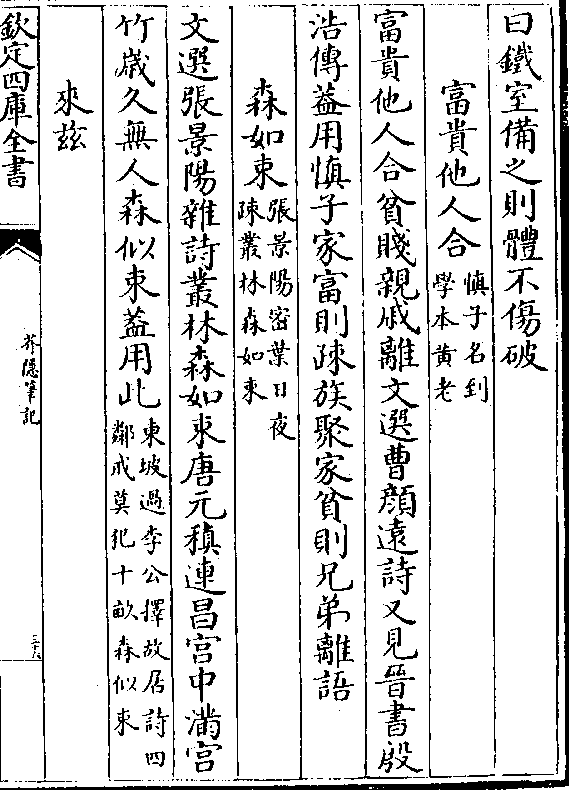 曰鐵室備之則體不傷破
富貴他人合慎子名到
學本黄老
富貴他人合貧賤親戚離文選曹顔遠詩又見晉書殷
浩傳葢用慎子家富則疎族聚家貧則兄弟離語
森如束張景陽密葉日夜
疎叢林森如束
文選張景陽雜詩叢林森如束唐元稹連昌宫中滿宫
竹嵗久無人森似束葢用此東坡過李公擇故居詩四
鄰戒莫犯十畝森似束
來玆
欽定四庫全書
芥隱筆記
三十六